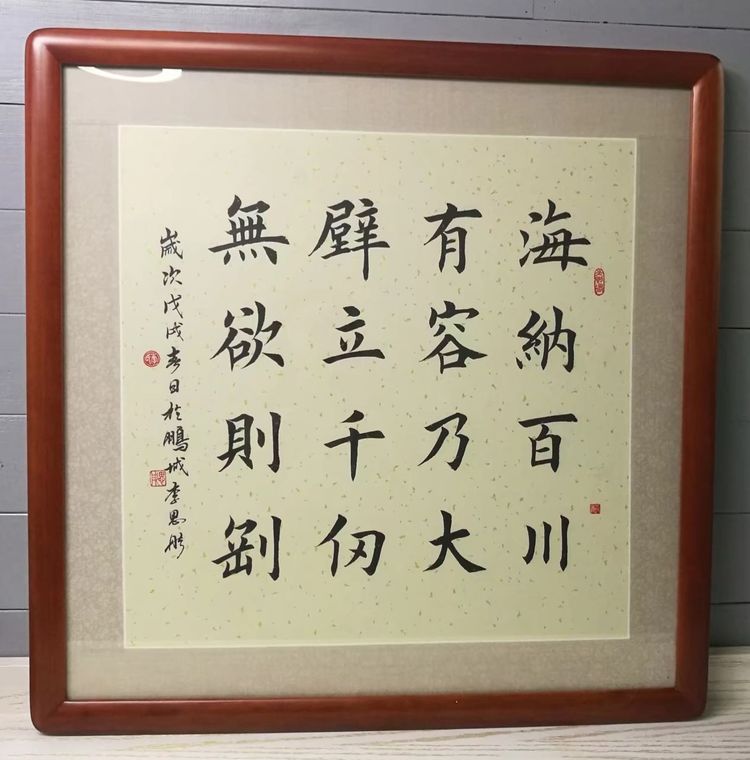 海納百川
有容乃大
壁立千仞
無欲則剛
歲次戊戌春日於鵬城李思彤